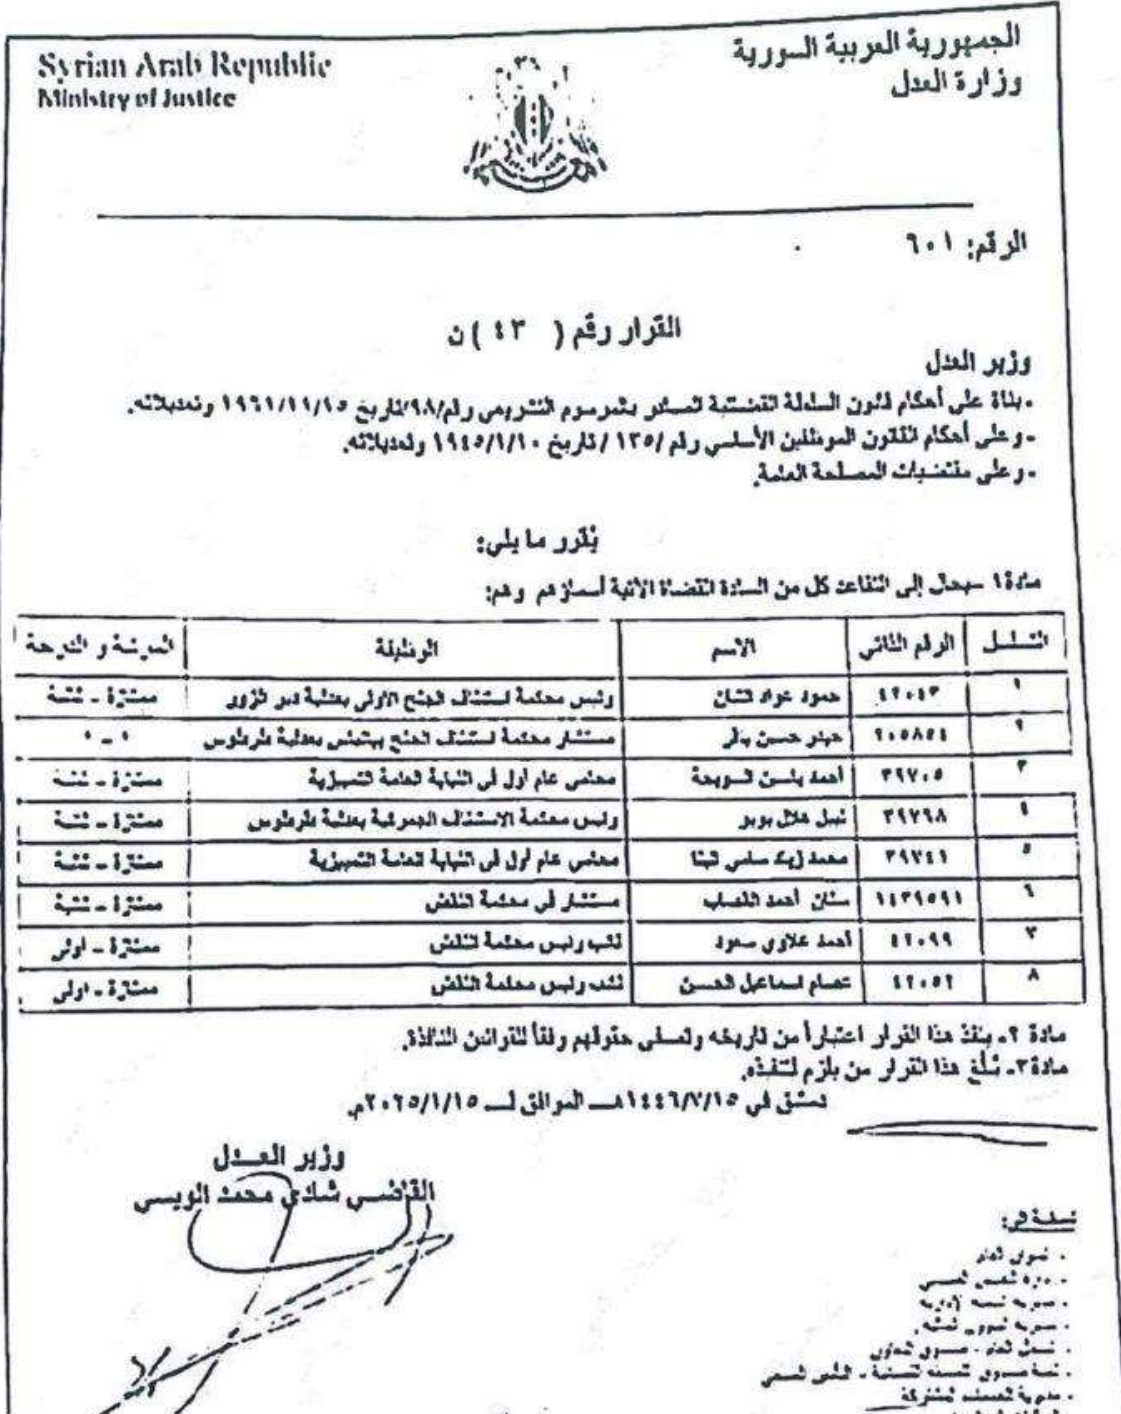 الجمهورية العربية السورية
وزارة العدل
Syrian Arab Republic
Ministry of Justice
الرقم: ٦٠١
القرار رقم ( ٤٣ ) ن
وزير العدل
- بناءً على أحكام قانون السلطة القضائية الصادر بالمرسوم التشريعي رقم/٩٨/تاريخ ١٩٦١/١١/١٥ وتعديلاته.
- وعلى أحكام القانون الموظفين الأساسي رقم /١٣٥ / تاريخ ١٩٤٥/١/١٠ وتعديلاته.
- وعلى مقتضيات المصلحة العامة.
يُقرر ما يلي:
مادة١ -يحال إلى التقاعد كل من السادة القضاة الآتية أسماؤهم وهم:
التسلسل الرقم الذاتي الاسم الوظيفة المرتبة و الدرجة
١ ٤٢٠٤٣ حمود عواد رئيس محكمة استئناف الجنح الأولى بعدلية دير الزور ممتازة - ثانية
٢ ٩٠٥٨٥٤ حيدر حسن مستشار محكمة استئناف الجنح ببانياس بعدلية طرطوس ٠ - ٠
٣ ٣٩٧٠٥ أحمد محامي عام أول في النيابة العامة التمييزية ممتازة - ثانية
٤ ٣٩٧٦٨ نبيل هلال رئيس محكمة الاستئناف الجمركية بعدلية طرطوس ممتازة - ثانية
٥ ٣٩٧٤١ محمد سامي البنا محامي عام أول في النيابة العامة التمييزية ممتازة - ثانية
٦ ١٤٣٩٥٩١ سنان أحمد القصاب مستشار في محكمة النقض ممتازة - ثانية
٧ ٤٢٠٩٩ أحمد علاوي سعود نائب رئيس محكمة النقض ممتازة - أولى
٨ ٤٢٠٥٢ عصام اسماعيل الحسن نائب رئيس محكمة النقض ممتازة - أولى
مادة ٢- ينفذ هذا القرار اعتباراً من تاريخه وتصفى حقوقهم وفقاً للقوانين النافذة.
مادة٣- يُبلغ هذا القرار من يلزم لتنفيذه.
دمشق في ١٤٤٦/٧/١٥هـ الموافق لـ ٢٠٢٥/١/١٥م.
وزير العـدل
القاضي شادي محمد الويسي
نسخة إلى: